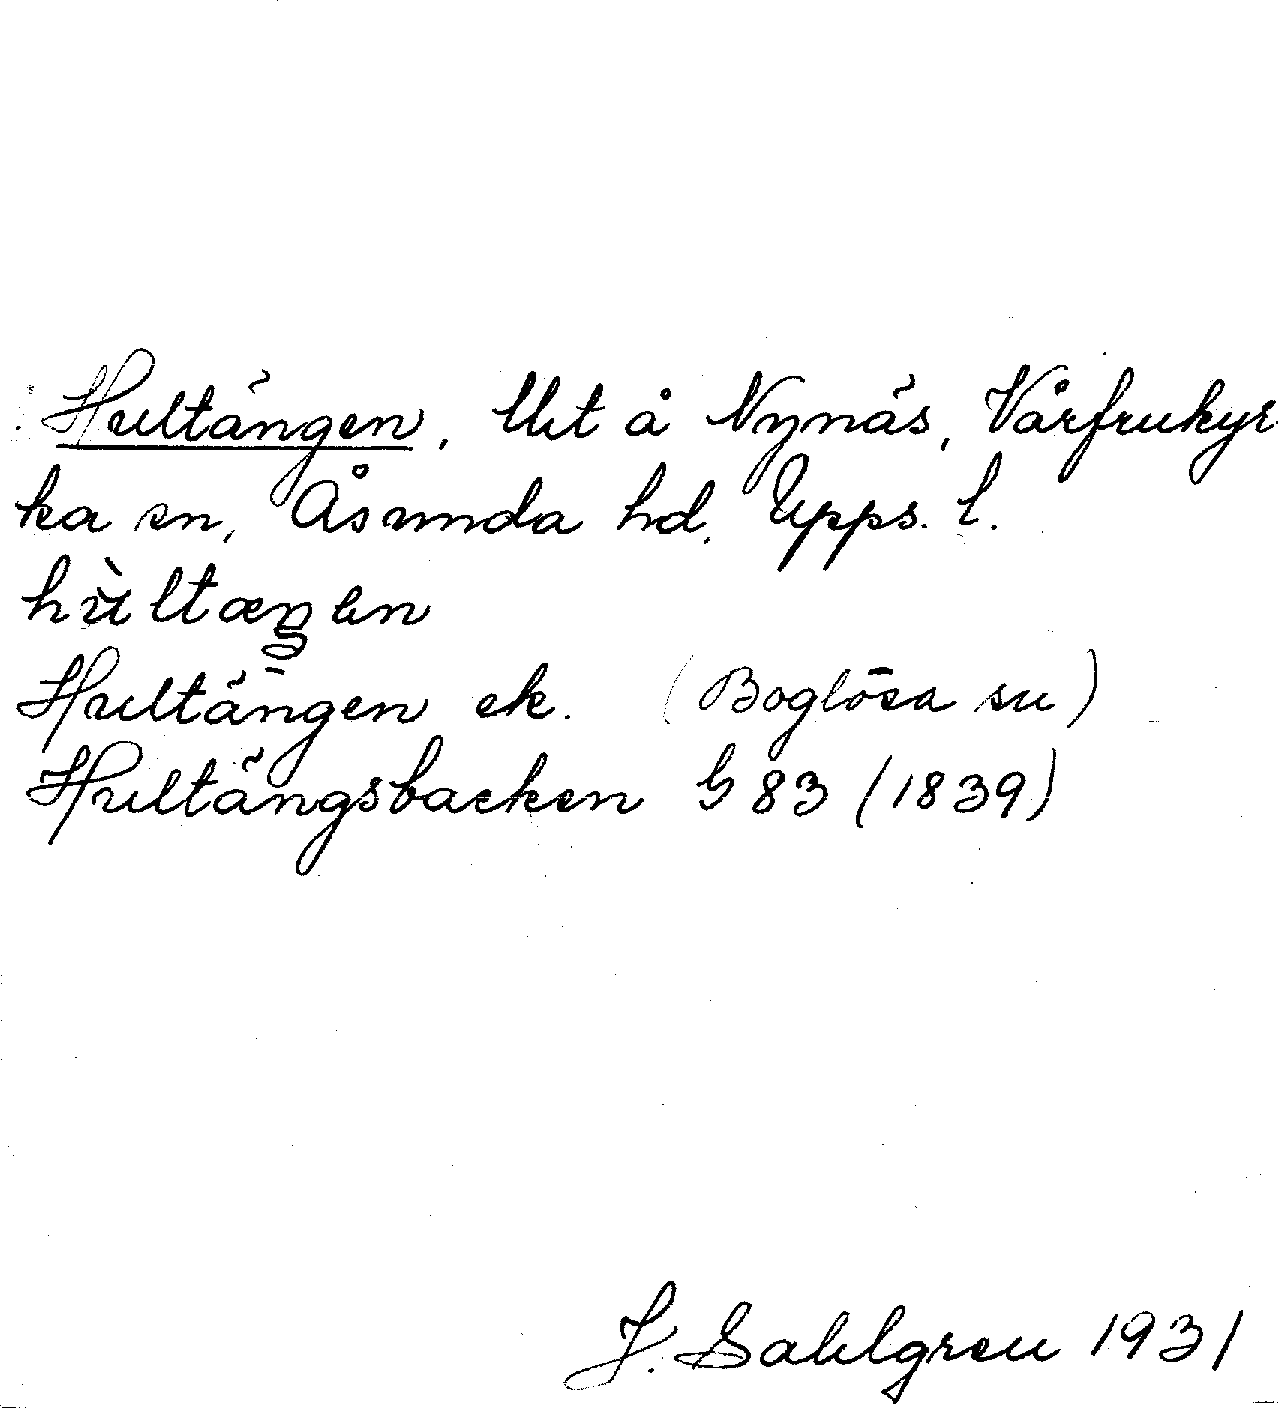 Hultängen, lht å Nynäs, Vårfrukyr
ka sn, Åsunda hd. Upps. l.
hùltæŋen
Hultängen ek. (Boglösa sn)
Hultängsbacken G 83 (1839)
J. Sahlgren 1931